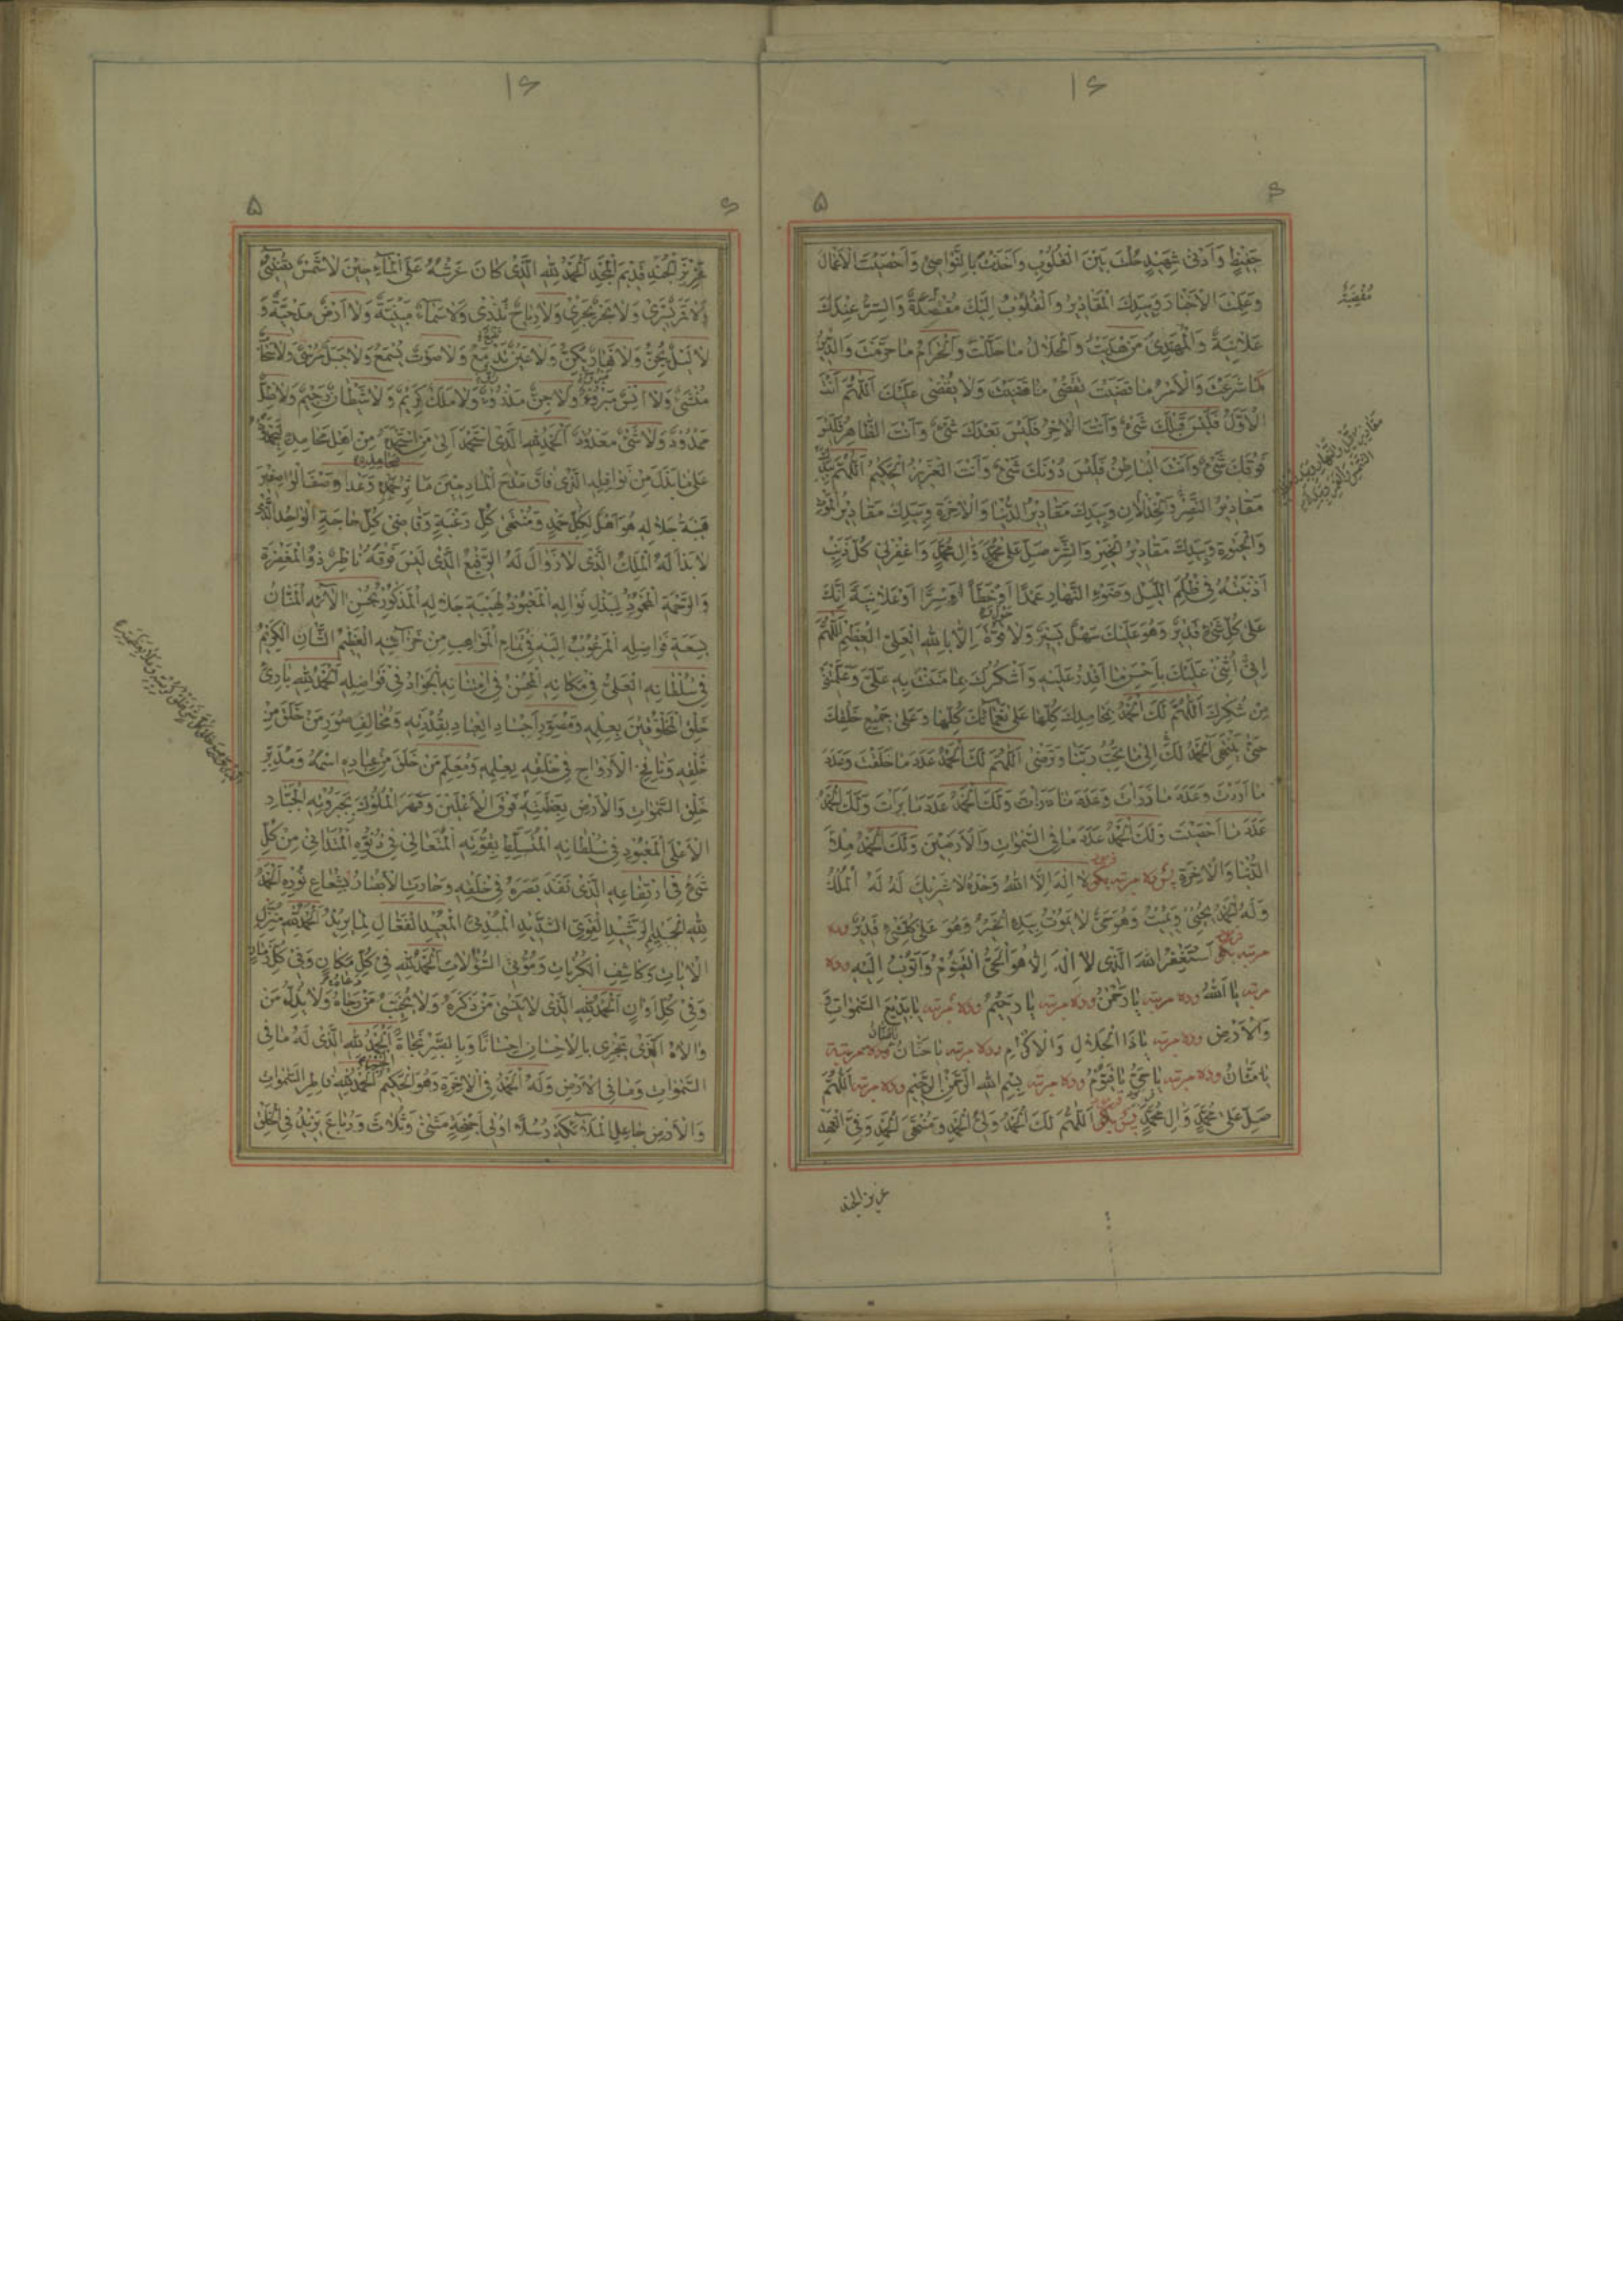 ۱۶
۶ ۵
حَفِيظٍ وَاَدْنىٰ شَهِيدٍ حُلْتَ بَيْنَ الْقُلُوبِ وَاَخَذْتَ بِالنَّواصِي وَاَحْصَيْتَ الْاَعْمالَ
وَعَلِمْتَ الْاَخْبارَ وَبِيَدِكَ الْمَقادِيرُ وَالْقُلُوبُ اِلَيْكَ مُقْصَدَةٌ وَالسِّرُّ عِنْدَكَ
مُفْضِيَةٌ
عَلانِيَةٌ وَالْمُهْتَدِي مَنْ هَدَيْتَ وَالْحَلالُ ما حَلَّلْتَ وَالْحَرامُ ما حَرَّمْتَ وَالدِّينُ
ما شَرَعْتَ وَالْاَمْرُ ما قَضَيْتَ تَقْضِي ما قَضَيْتَ وَلا يُقْضىٰ عَلَيْكَ اَللّٰهُمَّ اَنْتَ
الْاَوَّلُ فَلَيْسَ قَبْلَكَ شَيْءٌ وَاَنْتَ الْاٰخِرُ فَلَيْسَ بَعْدَكَ شَيْءٌ وَاَنْتَ الظّاهِرُ فَلَيْسَ
فَوْقَكَ شَيْءٌ وَاَنْتَ الْباطِنُ فَلَيْسَ دُونَكَ شَيْءٌ وَاَنْتَ الْعَزِيزُ الْحَكِيمُ اَللّٰهُمَّ بِيَدِكَ
مَقادِيرُ النَّصْرِ وَالْخِذْلانِ وَبِيَدِكَ مَقادِيرُ الدُّنْيا وَالْاٰخِرَةِ وَبِيَدِكَ مَقادِيرُ الْمَوْتِ
وَالْحَيٰوةِ وَبِيَدِكَ مَقادِيرُ الْخَيْرِ وَالشَّرِّ صَلِّ عَلىٰ مُحَمَّدٍ وَاٰلِ مُحَمَّدٍ وَاغْفِرْ لِي كُلَّ ذَنْبٍ
اَذْنَبْتُهُ فِي ظُلَمِ اللَّيْلِ وَضَوْءِ النَّهارِ عَمْدًا اَوْ خَطَأً اَوْ سِرًّا اَوْ عَلانِيَةً اِنَّكَ
عَلىٰ كُلِّ شَيْءٍ قَدِيرٌ وَهُوَ عَلَيْكَ سَهْلٌ يَسِيرٌ وَلا قُوَّةَ اِلّا بِاللّٰهِ الْعَلِيِّ الْعَظِيمِ اَللّٰهُمَّ
اِنِّي اُثْنِي عَلَيْكَ بِاَحْسَنِ ما اَقْدِرُ عَلَيْهِ وَاَشْكُرُكَ بِما مَنَنْتَ بِهِ عَلَيَّ وَعَلَّمْتَنِي
مِنْ شُكْرِكَ اَللّٰهُمَّ لَكَ الْحَمْدُ بِمَحامِدِكَ كُلِّها عَلىٰ نَعْمائِكَ كُلِّها وَعَلىٰ جَمِيعِ خَلْقِكَ
حَتّىٰ يَنْتَهِيَ الْحَمْدُ لَكَ اِلىٰ ما تُحِبُّ رَبَّنا وَتَرْضىٰ اَللّٰهُمَّ لَكَ الْحَمْدُ عَدَدَ ما خَلَقْتَ وَعَدَدَ
ما اَرَدْتَ وَعَدَدَ ما ذَرَأْتَ وَلَكَ الْحَمْدُ عَدَدَ ما بَرَأْتَ وَلَكَ الْحَمْدُ
عَدَدَ ما اَحْصَيْتَ وَلَكَ الْحَمْدُ عَدَدَ ما فِي السَّمٰواتِ وَالْاَرَضِينَ وَلَكَ الْحَمْدُ مِلْأَ
الدُّنْيا وَالْاٰخِرَةِ پس ده مرتبه بگو لا اِلٰهَ اِلَّا اللّٰهُ وَحْدَهُ لا شَرِيكَ لَهُ لَهُ الْمُلْكُ
وَلَهُ الْحَمْدُ يُحْيِي وَيُمِيتُ وَهُوَ حَيٌّ لا يَمُوتُ بِيَدِهِ الْخَيْرُ وَهُوَ عَلىٰ كُلِّ شَيْءٍ قَدِيرٌ وده
مرتبه بگو اَسْتَغْفِرُ اللّٰهَ الَّذِي لا اِلٰهَ اِلّا هُوَ الْحَيُّ الْقَيُّومُ وَاَتُوبُ اِلَيْهِ وده
مرتبه يا اَللّٰهُ وده مرتبه يا رَحْمٰنُ وده مرتبه يا رَحِيمُ وده مرتبه يا بَدِيعَ السَّمٰواتِ
وَالْاَرْضِ وده مرتبه يا ذَا الْجَلالِ وَالْاِكْرامِ وده مرتبه يا حَنّانُ وده مرتبة
يا مَنّانُ وده مرتبه يا حَيُّ يا قَيُّومُ وده مرتبه بِسْمِ اللّٰهِ الرَّحْمٰنِ الرَّحِيمِ وده مرتبه اَللّٰهُمَّ
صَلِّ عَلىٰ مُحَمَّدٍ وَاٰلِ مُحَمَّدٍ پس بگو اَللّٰهُمَّ لَكَ الْحَمْدُ وَلِيَّ الْحَمْدِ وَمُنْتَهَى الْحَمْدِ وَفِيَّ الْعَهْدِ
عزيز الجند
۱۶
۶ ۵
عَزِيزَ الْجُنْدِ قَدِيمَ الْمَجْدِ اَلْحَمْدُ لِلّٰهِ الَّذِي كانَ عَرْشُهُ عَلَى الْماءِ حِينَ لا شَمْسٌ تُضِيءُ
وَلا قَمَرٌ يَسْرِي وَلا بَحْرٌ يَجْرِي وَلا رِياحٌ تَذْرِي وَلا سَماءٌ مَبْنِيَّةٌ وَلا اَرْضٌ مَدْحِيَّةٌ وَ
لا لَيْلٌ يُجِنُّ وَلا نَهارٌ يُكِنُّ وَلا عَيْنٌ تَنْبُعُ وَلا صَوْتٌ يُسْمَعُ وَلا جَبَلٌ مُرْسىً وَلا سَحابٌ
مُنْشَأٌ وَلا اِنْسٌ مَبْرُوٌّ وَلا جِنٌّ مَذْرُوٌّ وَلا مَلَكٌ كَرِيمٌ وَلا شَيْطانٌ رَجِيمٌ وَلا ظِلٌّ
مَمْدُودٌ وَلا شَيْءٌ مَعْدُودٌ اَلْحَمْدُ لِلّٰهِ الَّذِي اسْتَحْمَدَ اِلىٰ مَنِ اسْتَحْمَدَهُ مِنْ اَهْلِ مَحامِدِهِ لِيَحْمَدُوهُ
عَلىٰ ما بَذَلَ مِنْ نَوافِلِهِ الَّذِي فاقَ مَدْحَ الْمادِحِينَ مَآثِرُ مَحامِدِهِ وَعَدا وَصْفَ الْواصِفِينَ
هَيْبَةُ جَلالِهِ هُوَ اَهْلٌ لِكُلِّ حَمْدٍ وَمُنْتَهىٰ كُلِّ رَغْبَةٍ وَقاضِي كُلِّ حاجَةٍ الْواحِدُ الَّذِي
لا بَدْأَ لَهُ الْمَلِكُ الَّذِي لا زَوالَ لَهُ الرَّفِيعُ الَّذِي لَيْسَ فَوْقَهُ ناظِرٌ ذُو الْمَغْفِرَةِ
وَالرَّحْمَةِ الْمَحْمُودُ لِبَذْلِ نَوالِهِ الْمَعْبُودُ لِهَيْبَةِ جَلالِهِ الْمَذْكُورُ بِحُسْنِ اٰلائِهِ الْمَنّانُ
بِسَعَةِ فَواضِلِهِ الْمَرْغُوبُ اِلَيْهِ فِي تَمامِ الْمَواهِبِ مِنْ خَزائِنِهِ الْعَظِيمُ الشَّأْنِ الْكَرِيمُ
فِي سُلْطانِهِ الْعَلِيُّ فِي مَكانِهِ الْمُحْسِنُ فِي امْتِنانِهِ الْجَوادُ فِي فَواضِلِهِ اَلْحَمْدُ لِلّٰهِ بارِئِ
خَلْقِ الْمَخْلُوقِينَ بِعِلْمِهِ وَمُصَوِّرِ اَجْسادِ الْعِبادِ بِقُدْرَتِهِ وَمُخالِفِ صُوَرِ مَنْ خَلَقَ مِنْ
خَلْقِهِ وَنافِخِ الْاَرْواحِ فِي خَلْقِهِ بِعِلْمِهِ وَمُعَلِّمِ مَنْ خَلَقَ مِنْ عِبادِهِ اسْمَهُ وَمُدَبِّرِ
خَلْقِ السَّمٰواتِ وَالْاَرْضِ بِعَظَمَتِهِ فَوْقَ الْاَعْلَيْنَ وَقَهَرَ الْمُلُوكَ بِجَبَرُوتِهِ الْجَبّارِ
الْاَعْلَى الْمَعْبُودِ فِي سُلْطانِهِ الْمُتَسَلِّطِ بِقُوَّتِهِ الْمُتَعالِي فِي دُنُوِّهِ الْمُتَدانِي مِنْ كُلِّ
شَيْءٍ فِي ارْتِفاعِهِ الَّذِي نَفَذَ بَصَرُهُ فِي خَلْقِهِ وَحارَتِ الْاَبْصارُ بِشُعاعِ نُورِهِ اَلْحَمْدُ
لِلّٰهِ الْحَلِيمِ الرَّشِيدِ الْقَوِيِّ الشَّدِيدِ الْمُبْدِئِ الْمُعِيدِ الْفَعّالِ لِما يُرِيدُ اَلْحَمْدُ لِلّٰهِ مُنْزِلِ
الْاٰياتِ وَكاشِفِ الْكُرُباتِ وَمُؤْتِي السُّؤُلاتِ اَلْحَمْدُ لِلّٰهِ فِي كُلِّ مَكانٍ وَفِي كُلِّ زَمانٍ
وَفِي كُلِّ اَوانٍ اَلْحَمْدُ لِلّٰهِ الَّذِي لا يَنْسىٰ مَنْ ذَكَرَهُ وَلا يُخَيِّبُ مَنْ دَعاهُ وَلا يُذِلُّ مَنْ
والاهُ الَّذِي يَجْزِي بِالْاِحْسانِ اِحْسانًا وَبِالصَّبْرِ نَجاةً اَلْحَمْدُ لِلّٰهِ الَّذِي لَهُ ما فِي
السَّمٰواتِ وَما فِي الْاَرْضِ وَلَهُ الْحَمْدُ فِي الْاٰخِرَةِ وَهُوَ الْحَكِيمُ اَلْحَمْدُ لِلّٰهِ فاطِرِ السَّمٰواتِ
وَالْاَرْضِ جاعِلِ الْمَلائِكَةِ رُسُلًا اُولِي اَجْنِحَةٍ مَثْنىٰ وَثُلاثَ وَرُباعَ يَزِيدُ فِي الْخَلْقِ